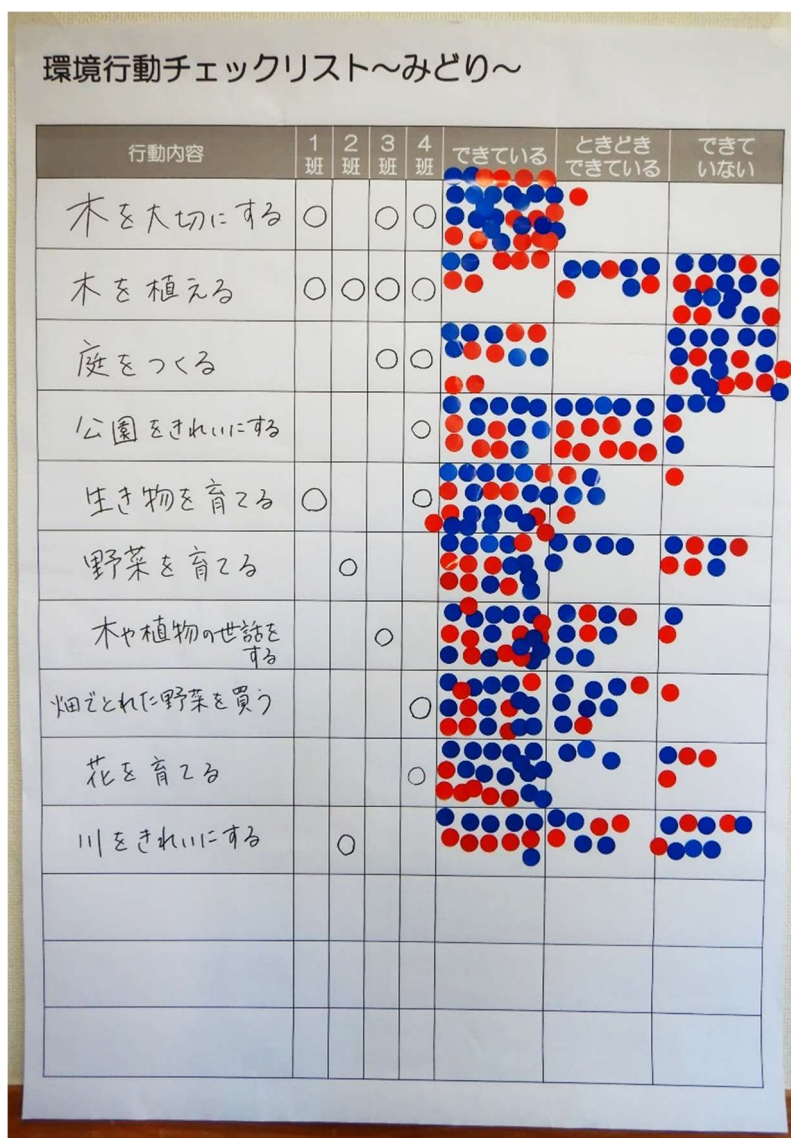 環境行動チェックリスト～みどり～
行動内容 1班 2班 3班 4班 できている ときどきできている できていない
木を大切にする ○ ○ ○
木を植える ○ ○ ○ ○
庭をつくる ○ ○
公園をきれいにする ○
生き物を育てる ○ ○
野菜を育てる ○
木や植物の世話をする ○
畑でとれた野菜を買う ○
花を育てる ○
川をきれいにする ○